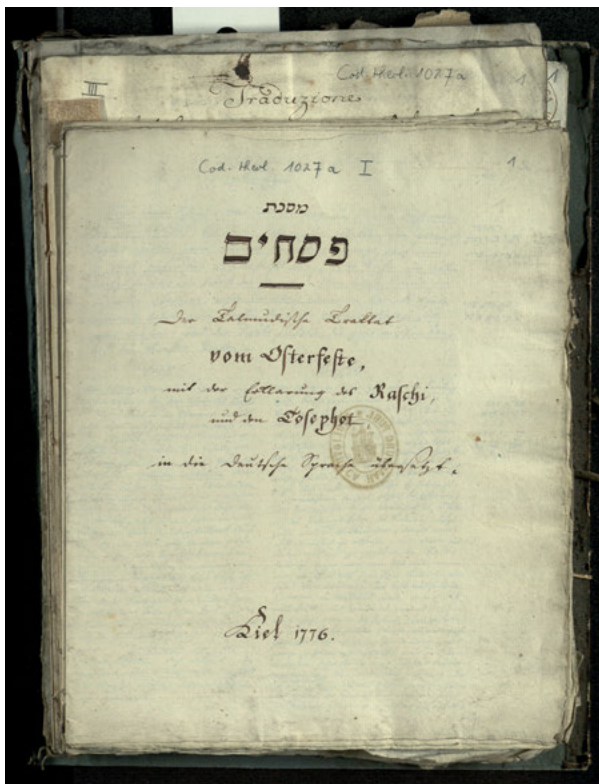 III
Cod. theol. 1027a
1
Traduzione
Cod. theol. 1027a I
1
מסכת
פסחים
Der Talmudische Traktat
vom Osterfeste,
mit der Erklärung des Raschi,
und den Tosephot
in die deutsche Sprache übersetzt.
Kiel 1776.